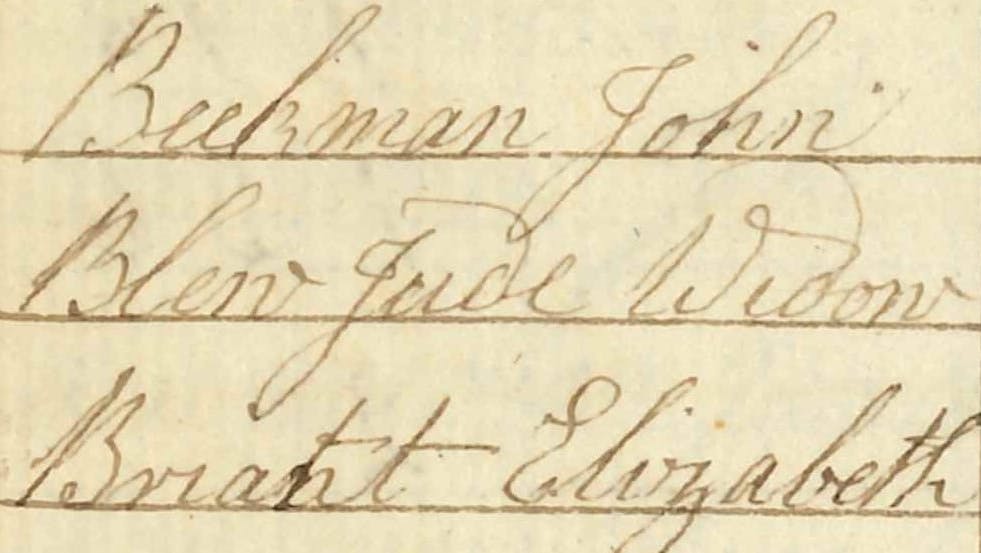 Beekman John
Blew Jude Widow
Briant Elizabeth